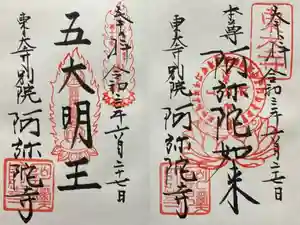 奉拝 令和三年六月二十七日
五大明王
東大寺別院 阿弥陀寺
奉拝 令和三年六月二十七日
本尊 阿弥陀如来
東大寺別院 阿弥陀寺